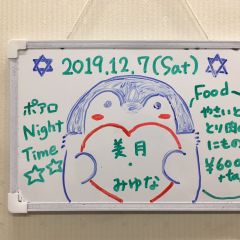 2019.12.7(Sat)
ポアロ
Night
Time
☆☆
美月
・
みゆな
Food
やさいと
とり肉の
にもの
¥600
+ta